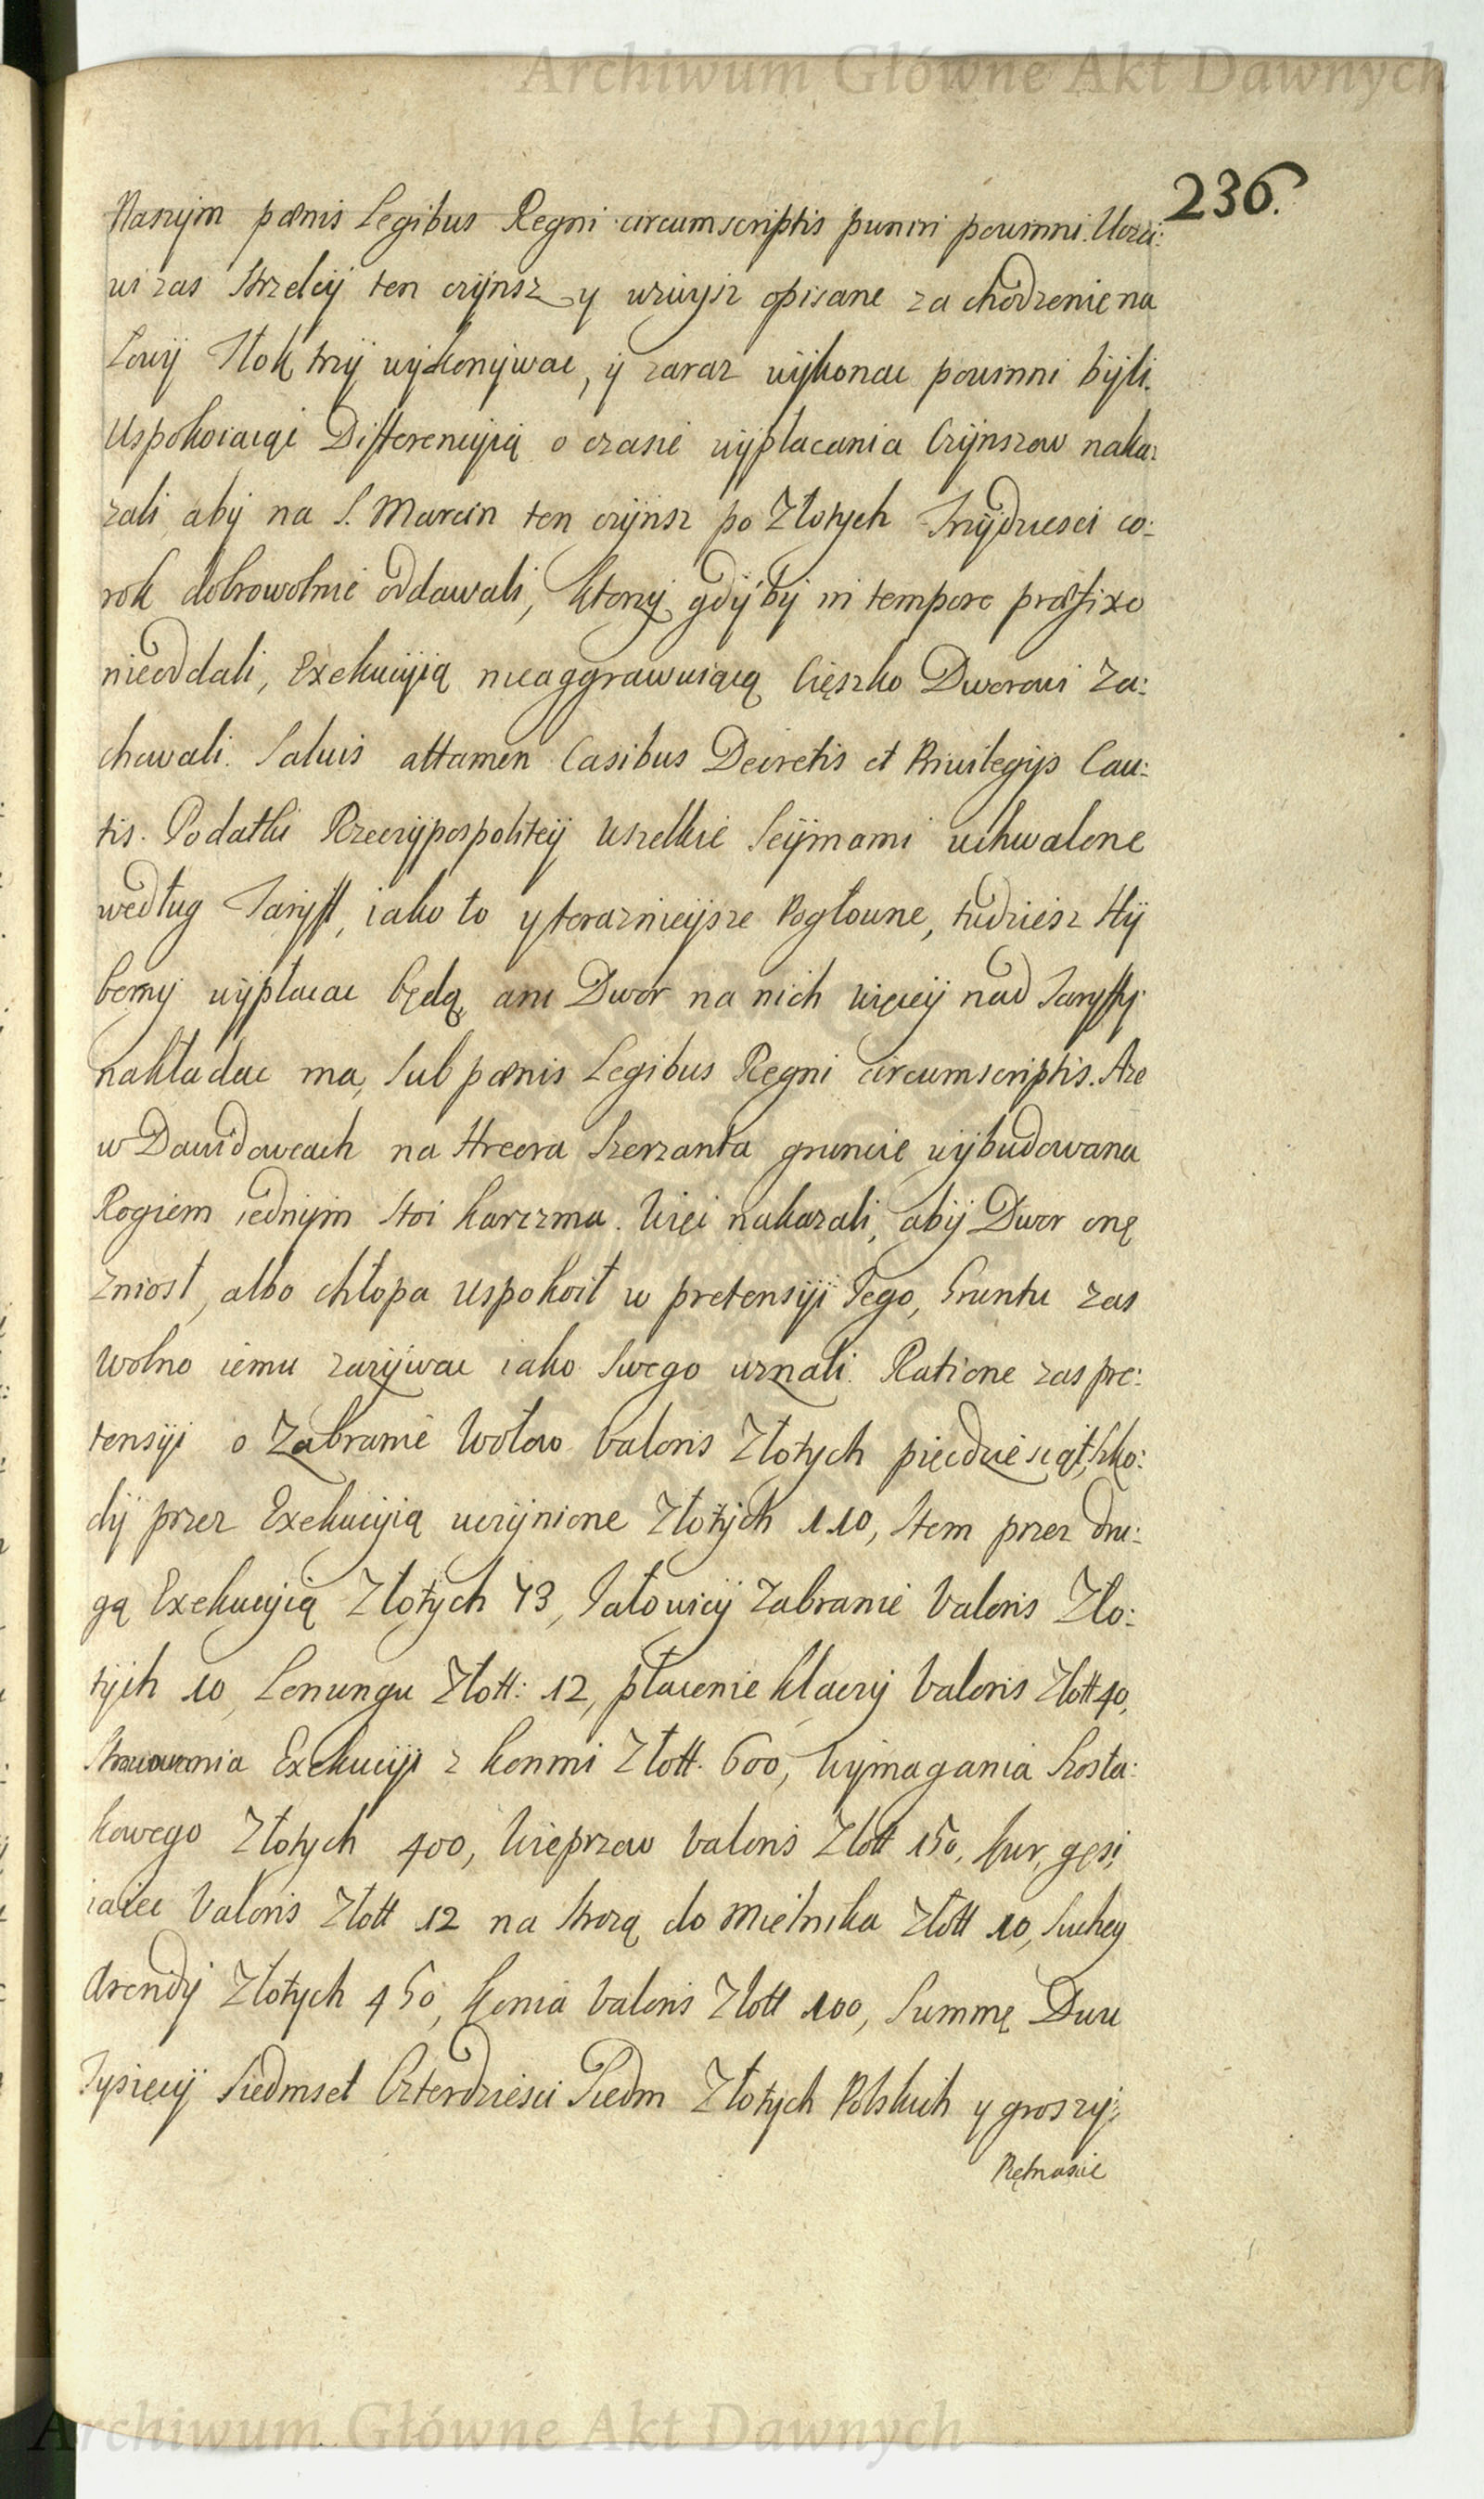 Archiwum Główne Akt Dawnych
236.
Naszym pœnis Legibus Regni circumscriptis puniri powinni. Uczci:
wi zas Strzelcÿ ten czÿnsz y wzwÿsz opisane za chodzenie na
Łowÿ Stok trzÿ wÿkonÿwac, ÿ zaraz wÿkonac powinni bÿli.
Uspokoiaiąc Differencÿią o czasie wÿpłacania Czÿnszow naka:
zali abÿ na S. Marcin ten czÿnsz po Złotych Trzÿdziesci co:
rok dobrowolnie oddawali, ktorÿ gdÿ bÿ in tempore præfixo
nieoddali, Exekucÿią nieaggrawuiącą Cięszko Dworowi Za:
chowali. Saluis attamen Casibus Decretis et Priuilegijs Cau:
tis. Podatki Rzeczÿpospolitey Wszelkie Seÿmami uchwalone
według Tarÿff, iako to y terazniejsze Pogłowne, tudziesz Hÿ
bernÿ wÿpłacac będą, ani Dwor na nich więcÿ nad Tarÿffÿ
nakładac ma, sub pœnis Legibus Regni circumscriptis. Aze
w Dawidowcach na Hrecra Szerzanta gruncie wÿbudowana
Rogiem iednÿm stoi karczma. Więc nakazali, abÿ Dwor onę
zniosł, albo chłopa uspokoił w pretensÿi Jego, Gruntu zas
wolno iemu zazÿwac iako Swego uznali. Ratione zas pre:
tensÿi o Zabranie Wołow Valoris Złotych piędziesiąt, szko:
dÿ przez Exekucÿią uczÿnione Złotÿch 110, Item przez dru:
gą Exekucÿią Złotÿch 73, Jałowicÿ zabranie Valoris Zło:
tÿch 10, Lenungu Złott: 12, płacenie klaczÿ Valoris Złott 40,
Exekucÿi z konmi Złott. 600, Wÿmagania Szosta:
kowego Złotych 400, Wieprzow Valoris Złott 150, kur, gęsi,
iaiec Valoris Złott 12 na Strozą do Mielnika Złott 10, Suchey
Arendÿ Złotych 450, konia Valoris Złott 100, Summę Dwu
Tysięcÿ Siedmset Czterdziesci Siedm Złotych Polskich y groszÿ:
Piętnascie
Archiwum Główne Akt Dawnych